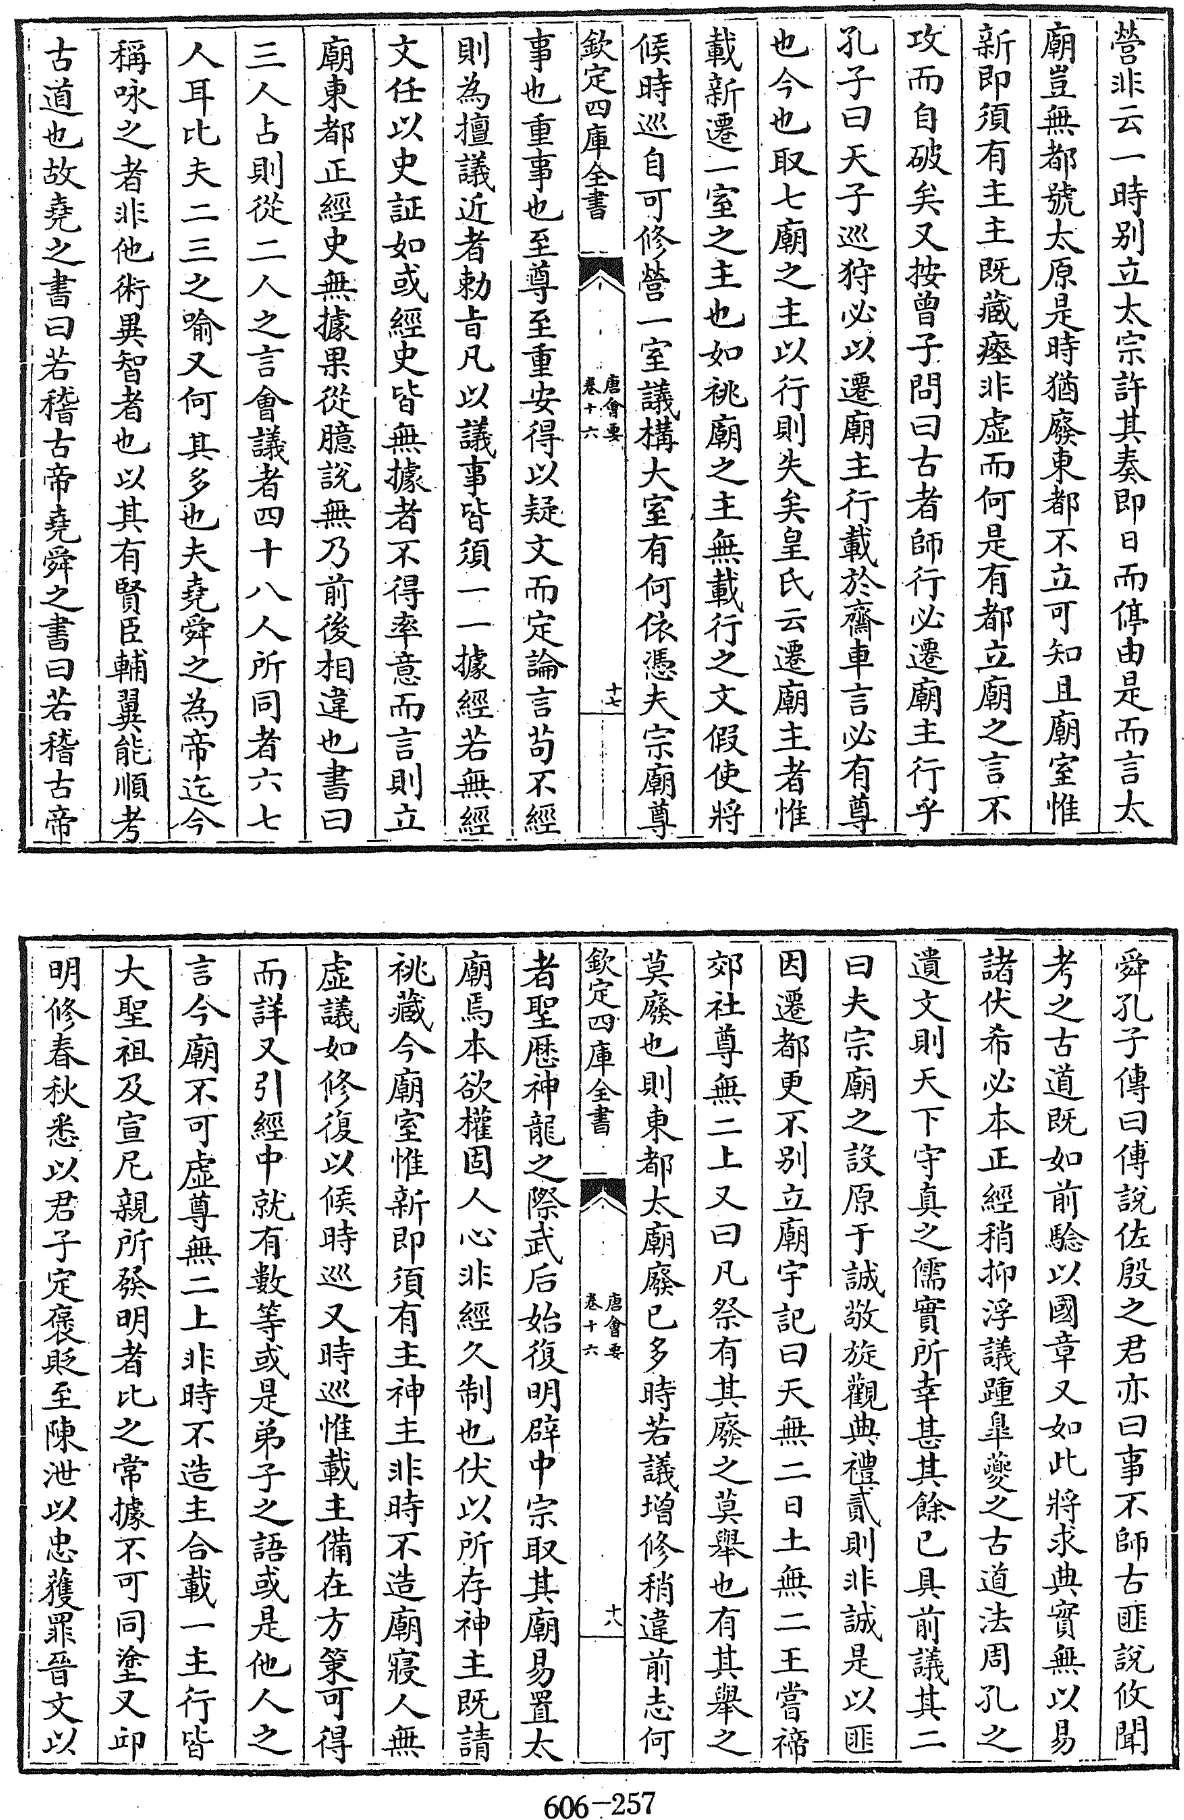 營非云一時别立太宗許其奏即日而停由是而言太
廟豈無都號太原是時猶廢東都不立可知且廟室惟
新即須有主主既藏瘞非虛而何是有都立廟之言不
攻而自破矣又按曾子問曰古者師行必遷廟主行乎
孔子曰天子巡狩必以遷廟主行載於齋車言必有尊
也今也取七廟之主以行則失矣皇氏云遷廟主者惟
載新遷一室之主也如祧廟之主無載行之文假使將
候時巡自可修營一室議構大室有何依憑夫宗廟尊
欽定四庫全書
唐會要
卷十六
十七
事也重事也至尊至重安得以疑文而定論言苟不經
則為擅議近者勅旨凡以議事皆須一一據經若無經
文任以史証如或經史皆無據者不得率意而言則立
廟東都正經史無據果從臆說無乃前後相違也書曰
三人占則從二人之言會議者四十八人所同者六七
人耳比夫二三之喻又何其多也夫堯舜之為帝迄今
稱咏之者非他術異智者也以其有賢臣輔翼能順考
古道也故堯之書曰若稽古帝堯舜之書曰若稽古帝
舜孔子傳曰傳說佐殷之君亦曰事不師古匪說攸聞
考之古道既如前驗以國章又如此將求典實無以易
諸伏希必本正經稍抑浮議踵臯夔之古道法周孔之
遺文則天下守真之儒實所幸甚其餘已具前議其二
曰夫宗廟之設原于誠敬旋觀典禮貳則非誠是以匪
因遷都更不别立廟宇記曰天無二日土無二王嘗禘
郊社尊無二上又曰凡祭有其廢之莫舉也有其舉之
莫廢也則東都太廟廢已多時若議增修稍違前志何
欽定四庫全書
唐會要
卷十六
十八
者聖歴神龍之際武后始復明辟中宗取其廟易置太
廟焉本欲權固人心非經久制也伏以所存神主既請
祧藏今廟室惟新即須有主神主非時不造廟寢人無
虛議如修復以候時巡又時巡惟載主備在方策可得
而詳又引經中就有數等或是弟子之語或是他人之
言今廟不可虛尊無二上非時不造主合載一主行皆
大聖祖及宣尼親所發明者比之常據不可同塗又卭
明修春秋悉以君子定褒貶至陳泄以忠獲罪晉文以
606-257